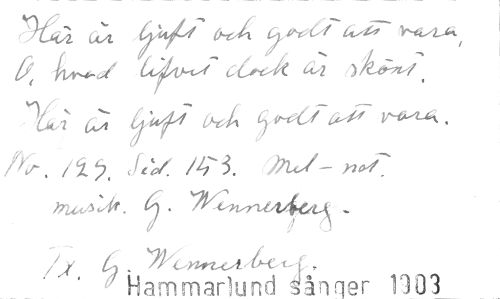 Här är ljuft och godt att vara,
O, hvad lifvet dock är skönt.
Här är ljuft och godt att vara.
No. 129. Sid. 153. Mel-not.
musik. G. Wennerberg.
Tx. G. Wennerberg.
Hammarlund sånger 1903